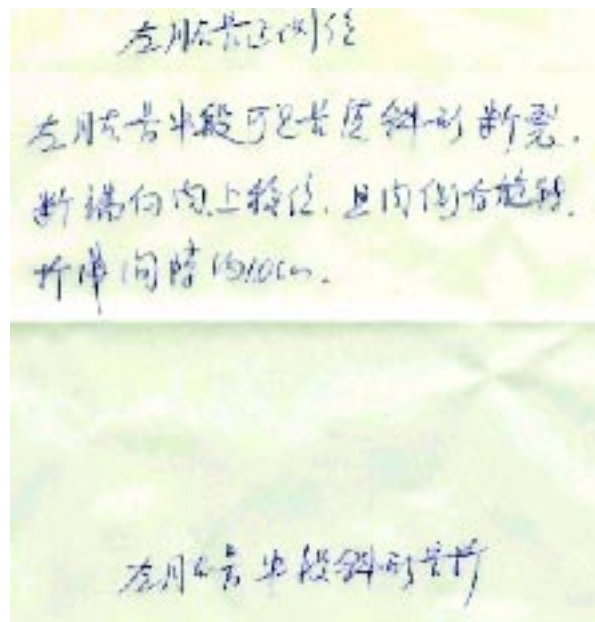 左肱骨正侧位
左肱骨中段可见骨质斜形断裂.
断端向内上移位.且内侧方旋转.
折端间隙约1.0cm.
左肱骨中段斜形骨折